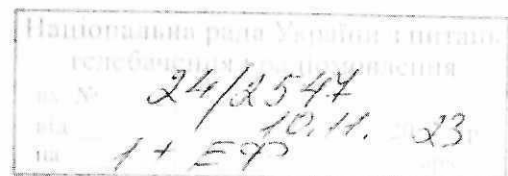 Національна рада України з питань
телебачення і радіомовлення
вх № 24/2547
від 10.11. 2023 р
на 1 + ЕФ арк